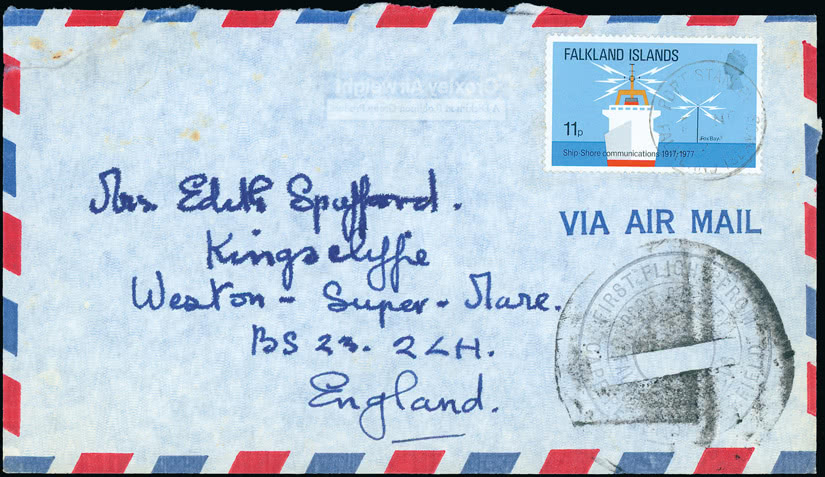 FALKLAND ISLANDS
11p
Fox Bay
Ship-Shore communications 1917-1977
Croxley Airweight
VIA AIR MAIL
FIRST FLIGHT FROM
Mrs Edith Spafford.
Kingscliffe
Weston-Super-Mare.
BS 23. 2LH.
England.